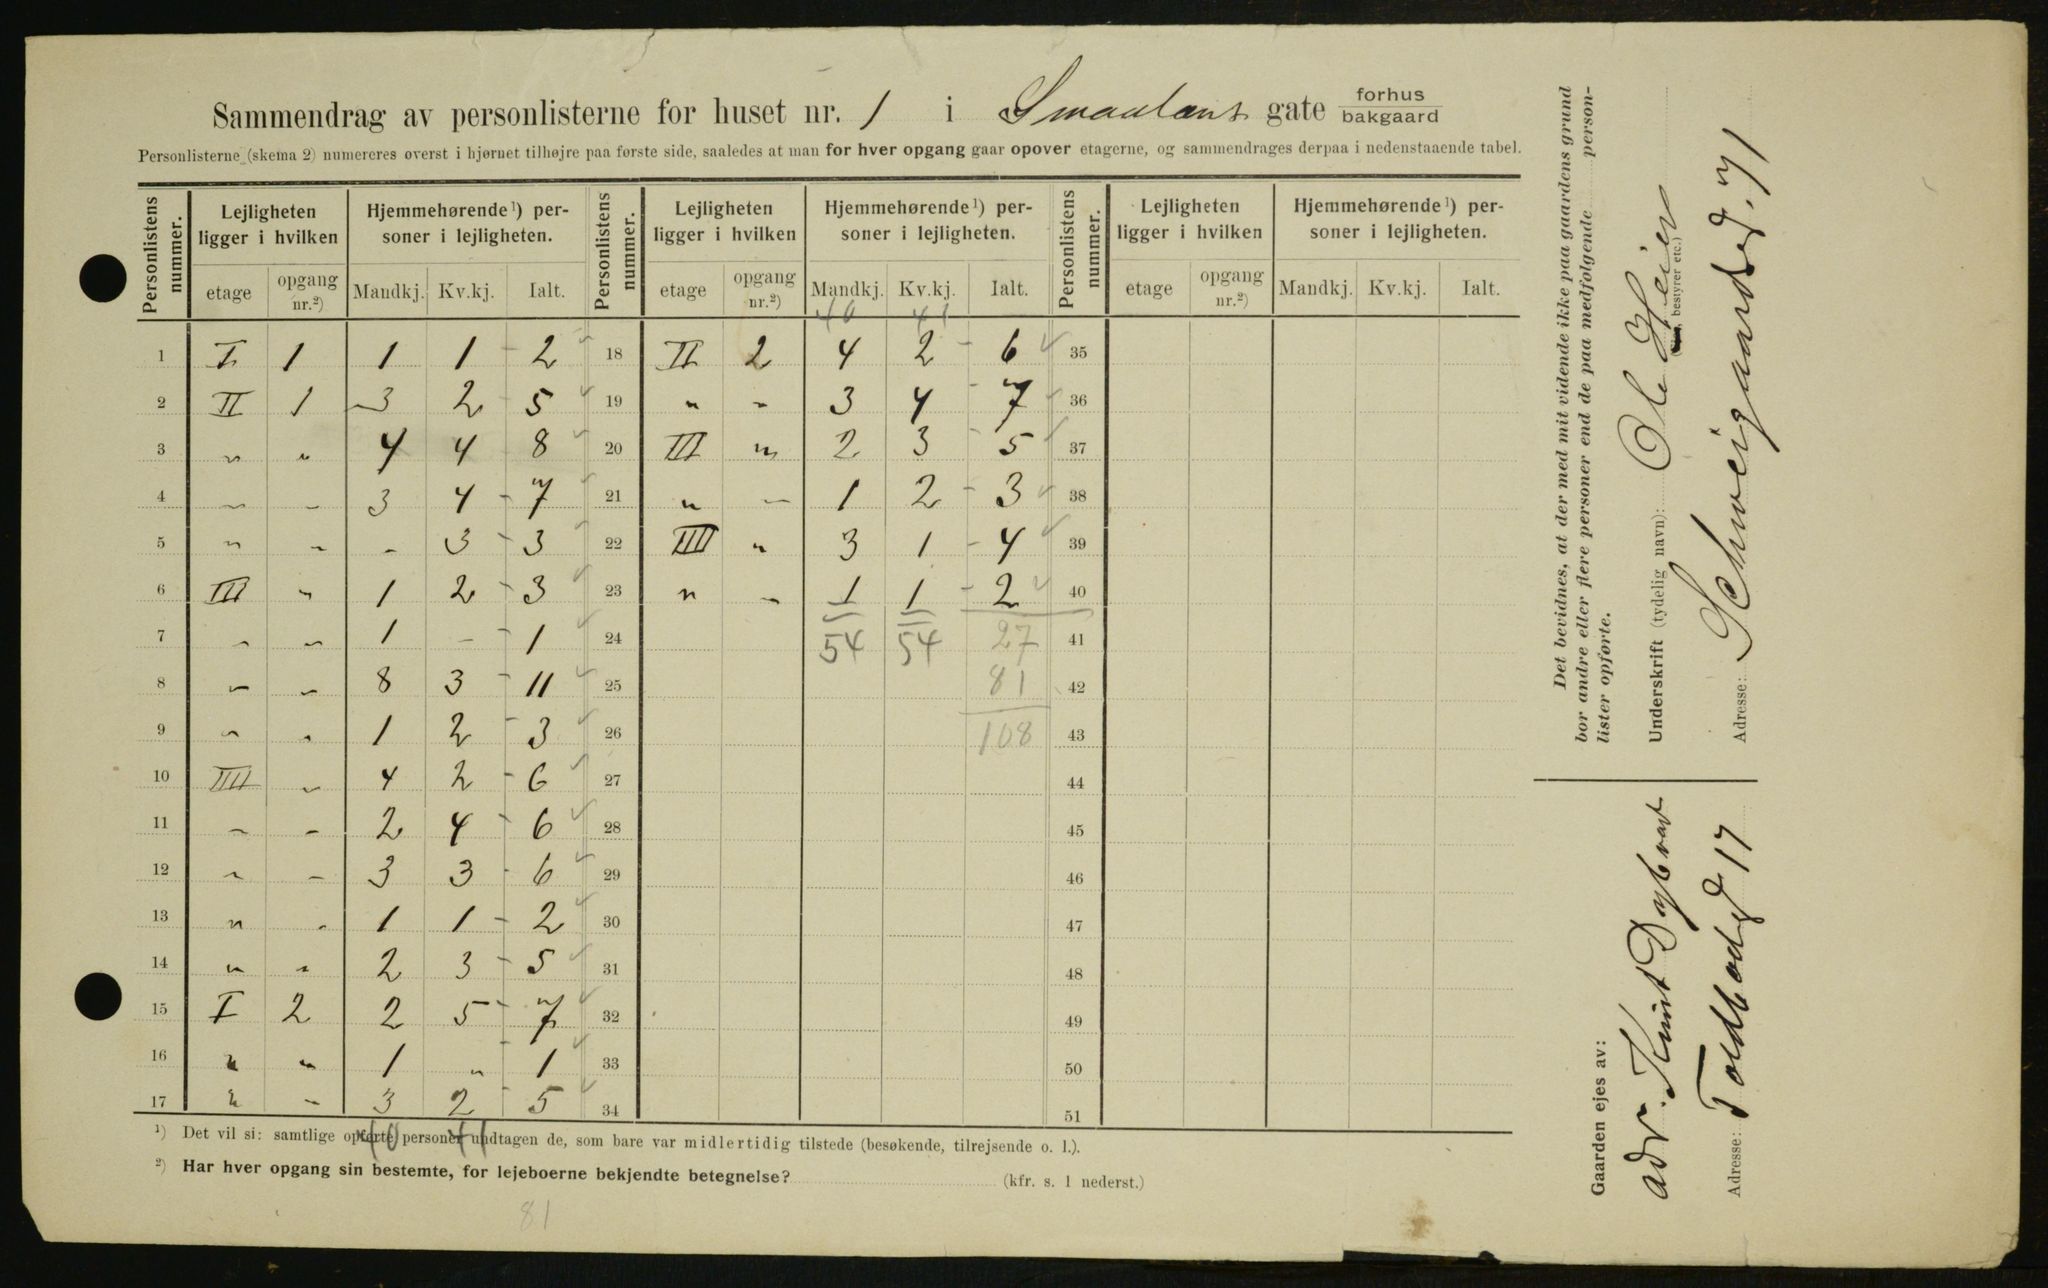 Sammendrag av personlisterne for huset nr. 1 i Smaalens gate forhus bakgaard
Personlisterne (skema 2) numereres øverst i hjørnet tilhøjre paa første side, saaledes at man for hver opgang gaar opover etagerne, og sammendrages derpaa i nedenstaaende tabel.
Personlistens nummer. Lejligheten ligger i hvilken Hjemmehørende ¹) personer i lejligheten. Personlistens nummer. Lejligheten ligger i hvilken Hjemmehørende ¹) personer i lejligheten. Personlistens nummer. Lejligheten ligger i hvilken Hjemmehørende ¹) personer i lejligheten.
etage opgang nr.²) Mandkj. Kv.kj. Ialt. etage opgang nr.²) Mandkj. Kv.kj. Ialt. etage opgang nr.²) Mandkj. Kv.kj. Ialt.
40 41
1 I 1 1 1 - 2 18 II 2 4 2 - 6 35
2 II 1 3 2 - 5 19 " " 3 4 - 7 36
3 " " 4 4 8 20 III " 2 3 - 5 37
4 " " 3 4 - 7 21 " " 1 2 - 3 38
5 " " - 3 - 3 22 IIII " 3 1 - 4 39
6 III " 1 2 - 3 23 " " 1 1 - 2 40
7 " " 1 - - 1 24 54 54 27 41
8 " " 8 3 - 11 25 81 42
9 " " 1 2 - 3 26 108 43
10 IIII " 4 2 - 6 27 44
11 " " 2 4 - 6 28 45
12 " " 3 3 - 6 29 46
13 " " 1 1 - 2 30 47
14 " " 2 3 - 5 31 48
15 I 2 2 5 - 7 32 49
16 " " 1 " - 1 33 50
17 " " 3 2 - 5 34 51
40 41
¹) Det vil si: samtlige opførte personer undtagen de, som bare var midlertidig tilstede (besøkende, tilrejsende o. l.).
²) Har hver opgang sin bestemte, for lejeboerne bekjendte betegnelse? (kfr. s. 1 nederst.)
81
Det bevidnes, at der med mit vidende ikke paa gaardens grund
bor andre eller flere personer end de paa medfølgende person-
lister opførte.
Underskrift (tydelig navn): Ole Heier
(Eier, bestyrer etc.)
Adresse: Schweigaardsgd. 71
Gaarden ejes av:
adv. Knut Dagbrad
Adresse: Toldbodgd 17